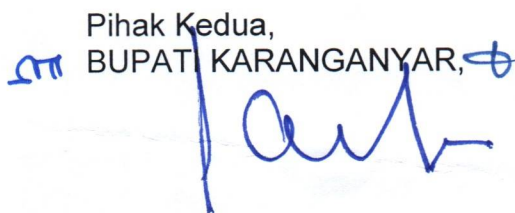 Pihak Kedua,
BUPATI KARANGANYAR,